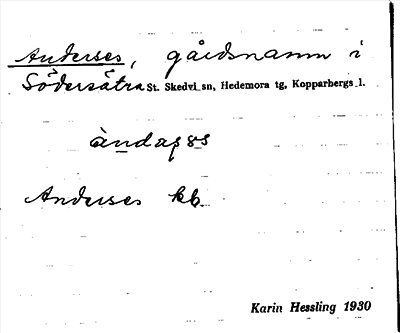 Anderses, gårdsnamn i
Södersätra St. Skedvi sn, Hedemora tg, Kopparbergs l.
Anderses kb.
Karin Hessling 1930